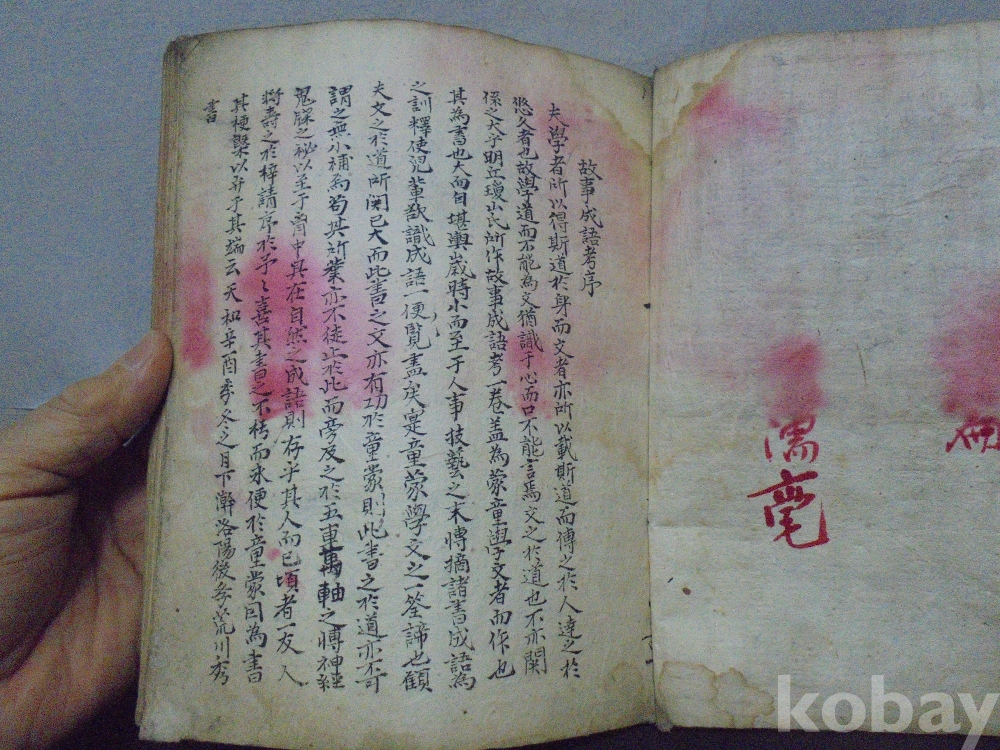 濡
毫
故事成語考序
夫學者所以得斯道於身而文者亦所以載斯道而傳之於人達之於
悠久者也故學道而不能為文猶識于心而口不能言焉文之於道也不亦関
係之大乎明丘瓊山氏所作故事成語考一卷盖為蒙童學文者而作也
其為書也大而自堪輿歳時小而至于人事技藝之末博摘諸書成語為
之訓釋使兒輩欲識成語一便覧盡矣寔童蒙學文之一筌諦也顧
夫文之於道所関已大而此書之文亦有功於童蒙則此書之於道亦不可
謂之無小補為苟其所業亦不徒止於此而旁及之於五車萬軸之博神經
鬼牒之祕以至于胷中具在自然之成語則存乎其人而已頃者一友人
将壽之於梓請序於予〻喜其書之不朽而永便於童蒙因為書
其梗槩以弁于其端云天和辛酉季冬之月下澣洛陽後学荒川秀
書
kobay